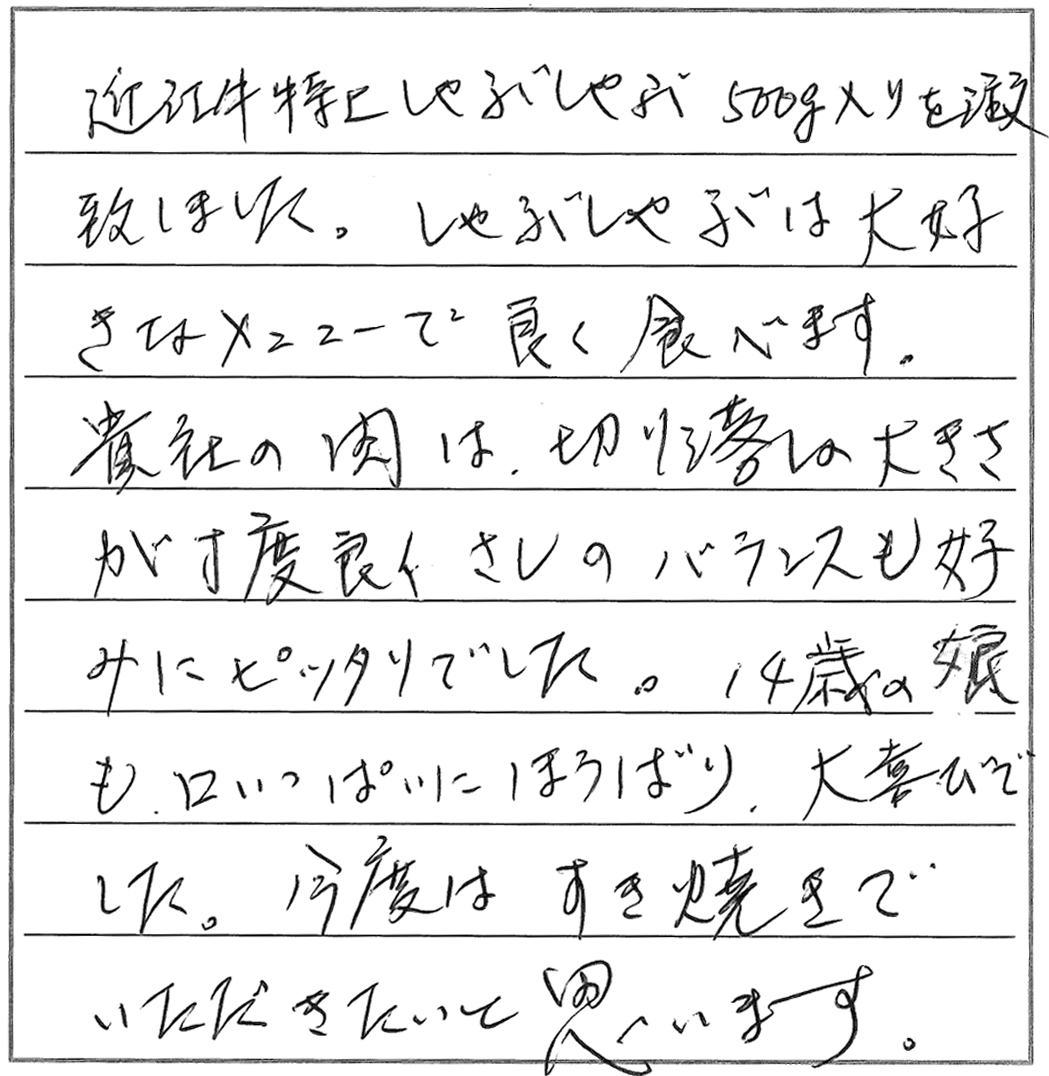 近江牛特上しゃぶしゃぶ 500g入りを注文
致しました。しゃぶしゃぶは大好
きなメニューで良く食べます。
貴社の肉は、切り落しの大きさ
が丁度良くさしのバランスも好
みにピッタリでした。14歳の娘
も、口いっぱいにほうばり、大喜びで
した。今度はすき焼きで
いただきたいと思います。